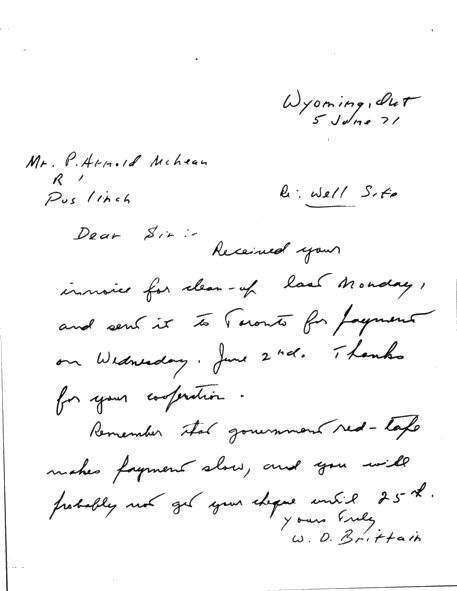 Wyoming, Ont
5 June 71
Mr. P. Arnold McLean
R 1
Puslinch
Re: Well Site
Dear Sir :-
Received your
invoice for clean-up last Monday,
and sent it to Toronto for payment
on Wednesday. June 2nd. Thanks
for your cooperation.
Remember that government red-tape
makes payment slow, and you will
probably not get your cheque until 25th.
Yours Truly
W. D. Brittain